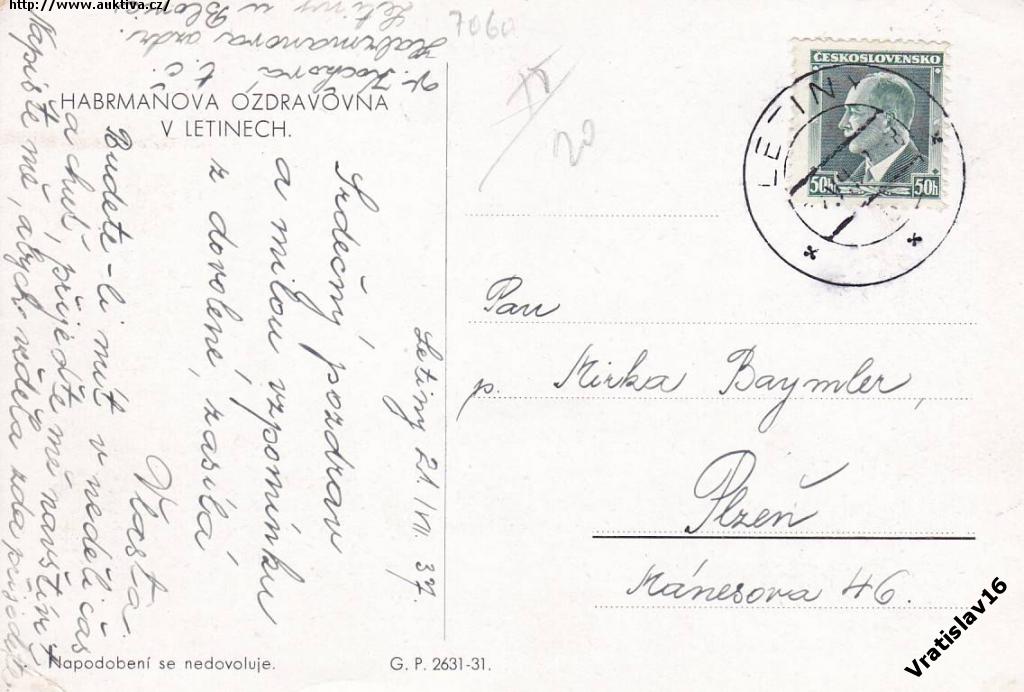 http://www.auktiva.cz/
7060
HABRMANOVA OZDRAVOVNA
V LETINECH.
Letiny 21./VII. 37.
Srdečný pozdrav
a milou vzpomínku
z dovolené, zasílá
Vlasta.
Budete-li mít v neděli čas
a chuť, přijeďte mě navštívit
Napište mě, abych věděla zda přijedete.
Kochová
t. č.
Habrmanova ozdr.
Letiny u Blovic
ČESKOSLOVENSKO
50h 50h
LETINY
20
Pan
p. Mirka Baymler,
Plzeň
Mánesova 46.
Napodobení se nedovoluje.
G. P. 2631-31.
Vratislav16